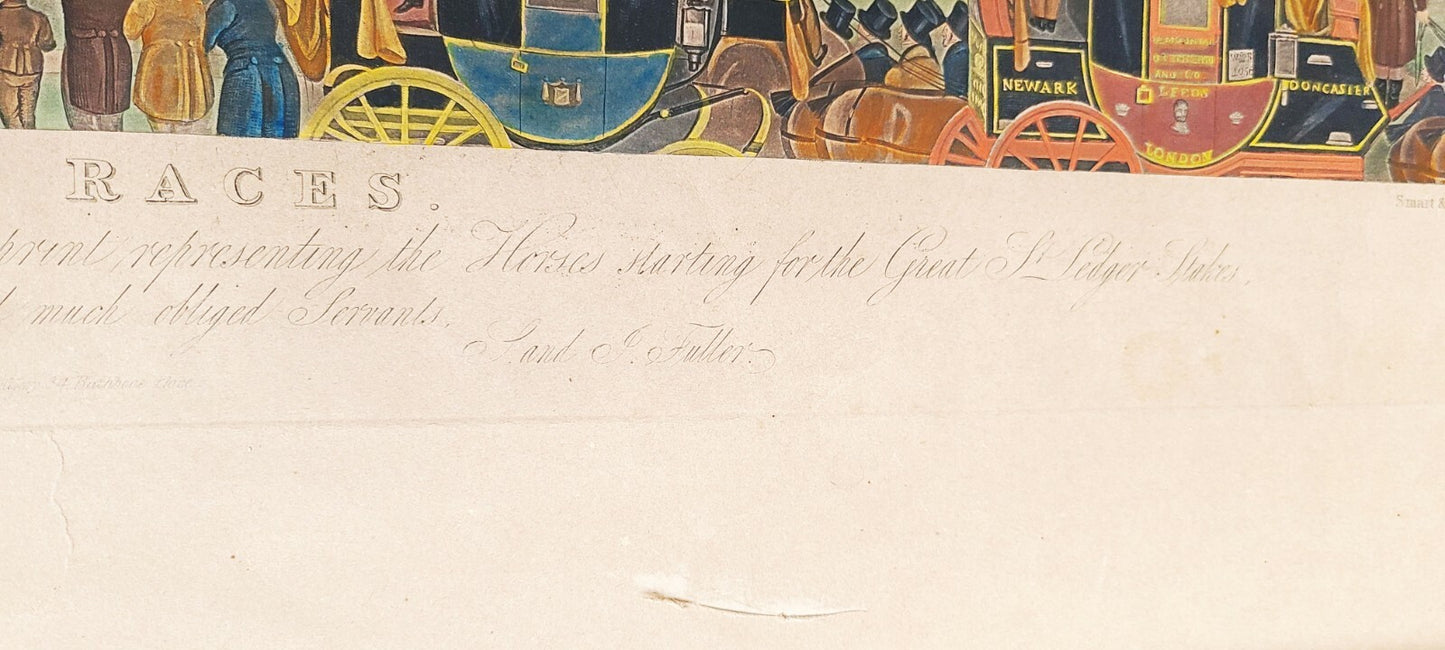 NEWARK
AND CO
LEEDS
LONDON
DONCASTER
RACES.
Smart &
print representing the Horses starting for the Great St. Ledger Stakes,
much obliged Servants,
S. and J. Fuller.
34 Rathbone Place